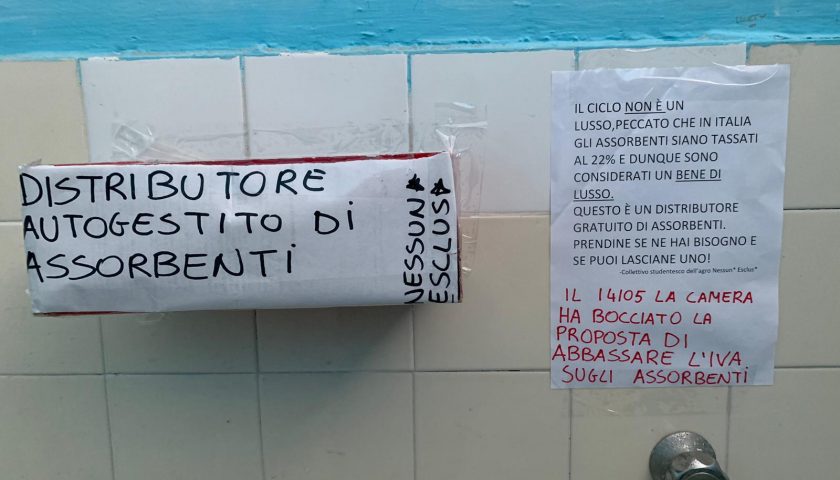 DISTRIBUTORE
AUTOGESTITO DI
ASSORBENTI
NESSUN*
ESCLUS*
IL CICLO NON È UN
LUSSO,PECCATO CHE IN ITALIA
GLI ASSORBENTI SIANO TASSATI
AL 22% E DUNQUE SONO
CONSIDERATI UN BENE DI
LUSSO.
QUESTO È UN DISTRIBUTORE
GRATUITO DI ASSORBENTI.
PRENDINE SE NE HAI BISOGNO E
SE PUOI LASCIANE UNO!
-Collettivo studentesco dell'agro Nessun* Esclus*
IL 14105 LA CAMERA
HA BOCCIATO LA
PROPOSTA DI
ABBASSARE L'IVA
SUGLI ASSORBENTI